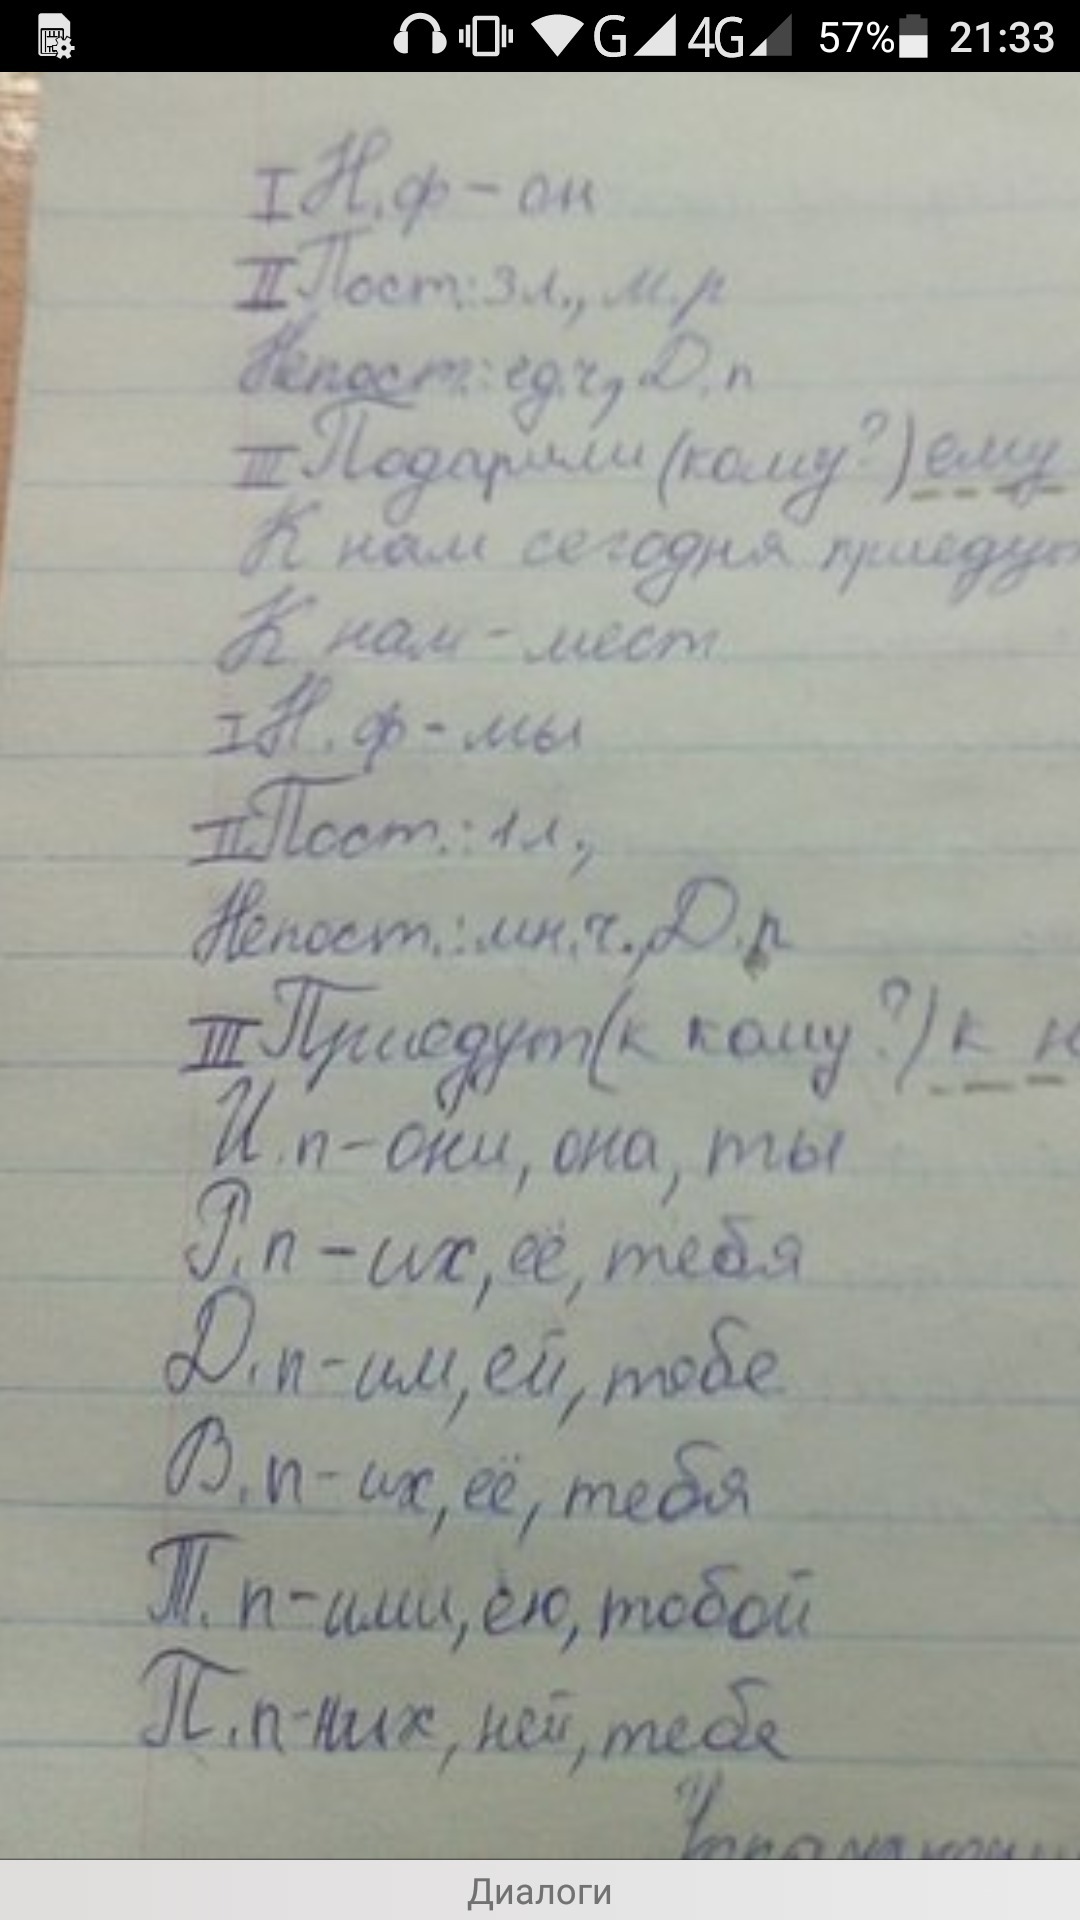 G 4G 57% 21:33
I Н.ф - он
II Пост.: 3л., м.р
Непост.: ед.ч, Д.п
III Подарили (кому?) ему
К нам сегодня приедут
К нам - мест
I Н.ф - мы
II Пост.: 1л.,
Непост.: мн.ч., Д.п
III Приедут (к кому?) к н
И.п - они, она, ты
Р.п - их, её, тебя
Д.п - им, ей, тебе
В.п - их, её, тебя
Т.п - ими, ею, тобой
П.п - них, ней, тебе
Диалоги